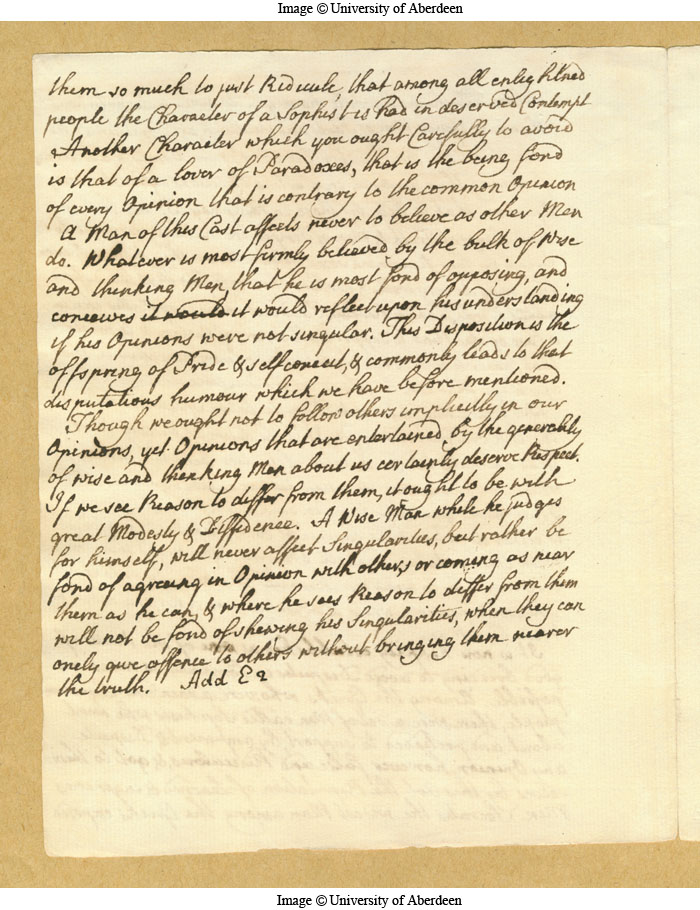 Image © University of Aberdeen
them so much to just Ridicule, that among all enlightned
people the Character of a Sophist is had in deserved Contempt
Another Character which you ought Carefully to avoid
is that of a lover of Paradoxes, that is the being fond
of every Opinion that is contrary to the common Opinion
A Man of this Cast affects never to believe as other Men
do. Whatever is most firmly believed by the bulk of Wise
and thinking Men, that he is most fond of opposing, and
conceives it would it would reflect upon his understanding
if his Opinions were not singular. This Disposition is the
offspring of Pride & selfconceit, & commonly leads to that
disputatious humour which we have before mentioned.
Though we ought not to follow others implicitly in our
Opinions, yet Opinions that are entertained by the generality
of wise and thinking Men about us certainly deserve Respect.
If we see Reason to differ from them, it ought to be with
great Modesty & Diffidence. A Wise Man while he judges
for himself, will never affect Singularities, but rather be
fond of agreeing in Opinion with others, or coming as near
them as he can, & where he sees Reason to differ from them
will not be fond of shewing his Singularities, when they can
onely give offence to others without bringing them nearer
the truth. Add E 2
Image © University of Aberdeen